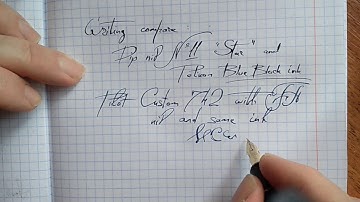 Writing compare
Dip nib № 11 "Star" and
Pelikan Blue Black ink
Pilot Custom 742 with FA
nib and same ink